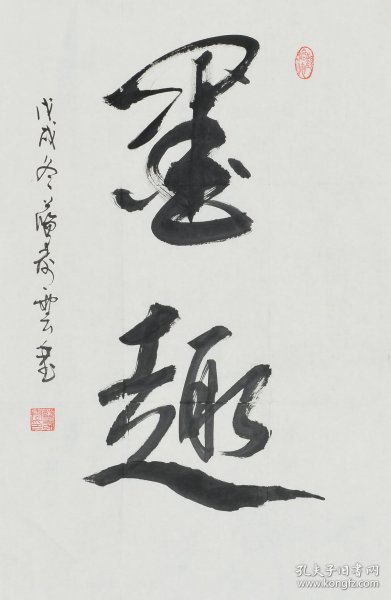 墨趣
戊戌冬潘寿云书
孔夫子旧书网
www.kongfz.com